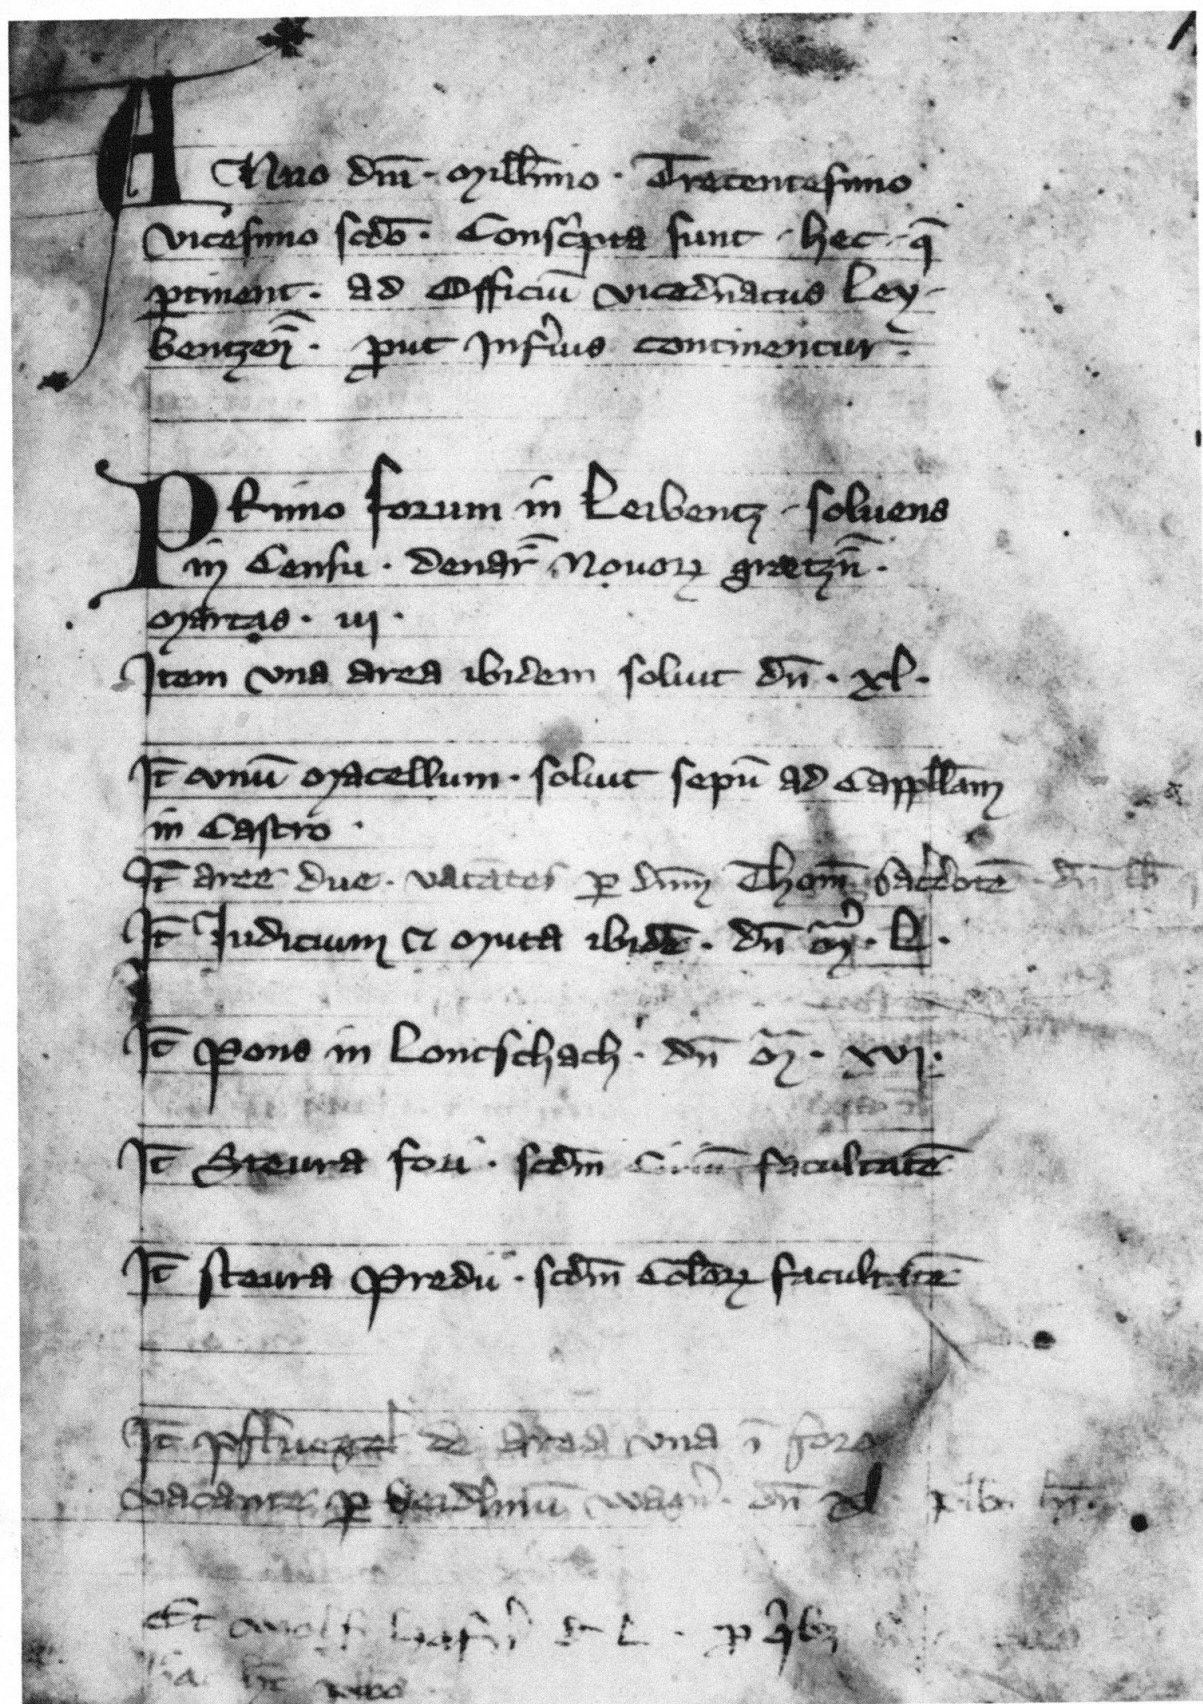 Anno dn̄i · Millīmo · Trecentesimo
vicesimo scd̄o · Consc'pta sunt · hec · q̄
ꝑtinent · ad Officiū vicedn̄atus Ley-
bentzen̄ · ꝓut Inf'ius continentur ·
PRimo forum in Leibentz · soluens
in Censu · denar̄ Nouoꝝ gretzn̄ ·
Marcas · iij ·
Item vna area ibidem soluit dn̄ · xl ·
It̄ vnū Macellum · soluit sepū ad Cappll̄am
in Castro ·
It̄ aree due · vacātes ꝑ dnm̄ Thom̄ sac'dotē dn̄
It̄ Iudicium et Muta ibidē · dn̄ Mr̄ · L ·
It̄ Pons in Lontschach · dn̄ Mr̄ · xvj ·
It̄ Steura fori · scdm̄ Ciuiū facultatē
It̄ steura Predii · scdm̄ Colōꝝ facultatē
It̄ de area vna ī foro
vacante ꝑ dn̄ xl
Et Wolf L · ꝑ